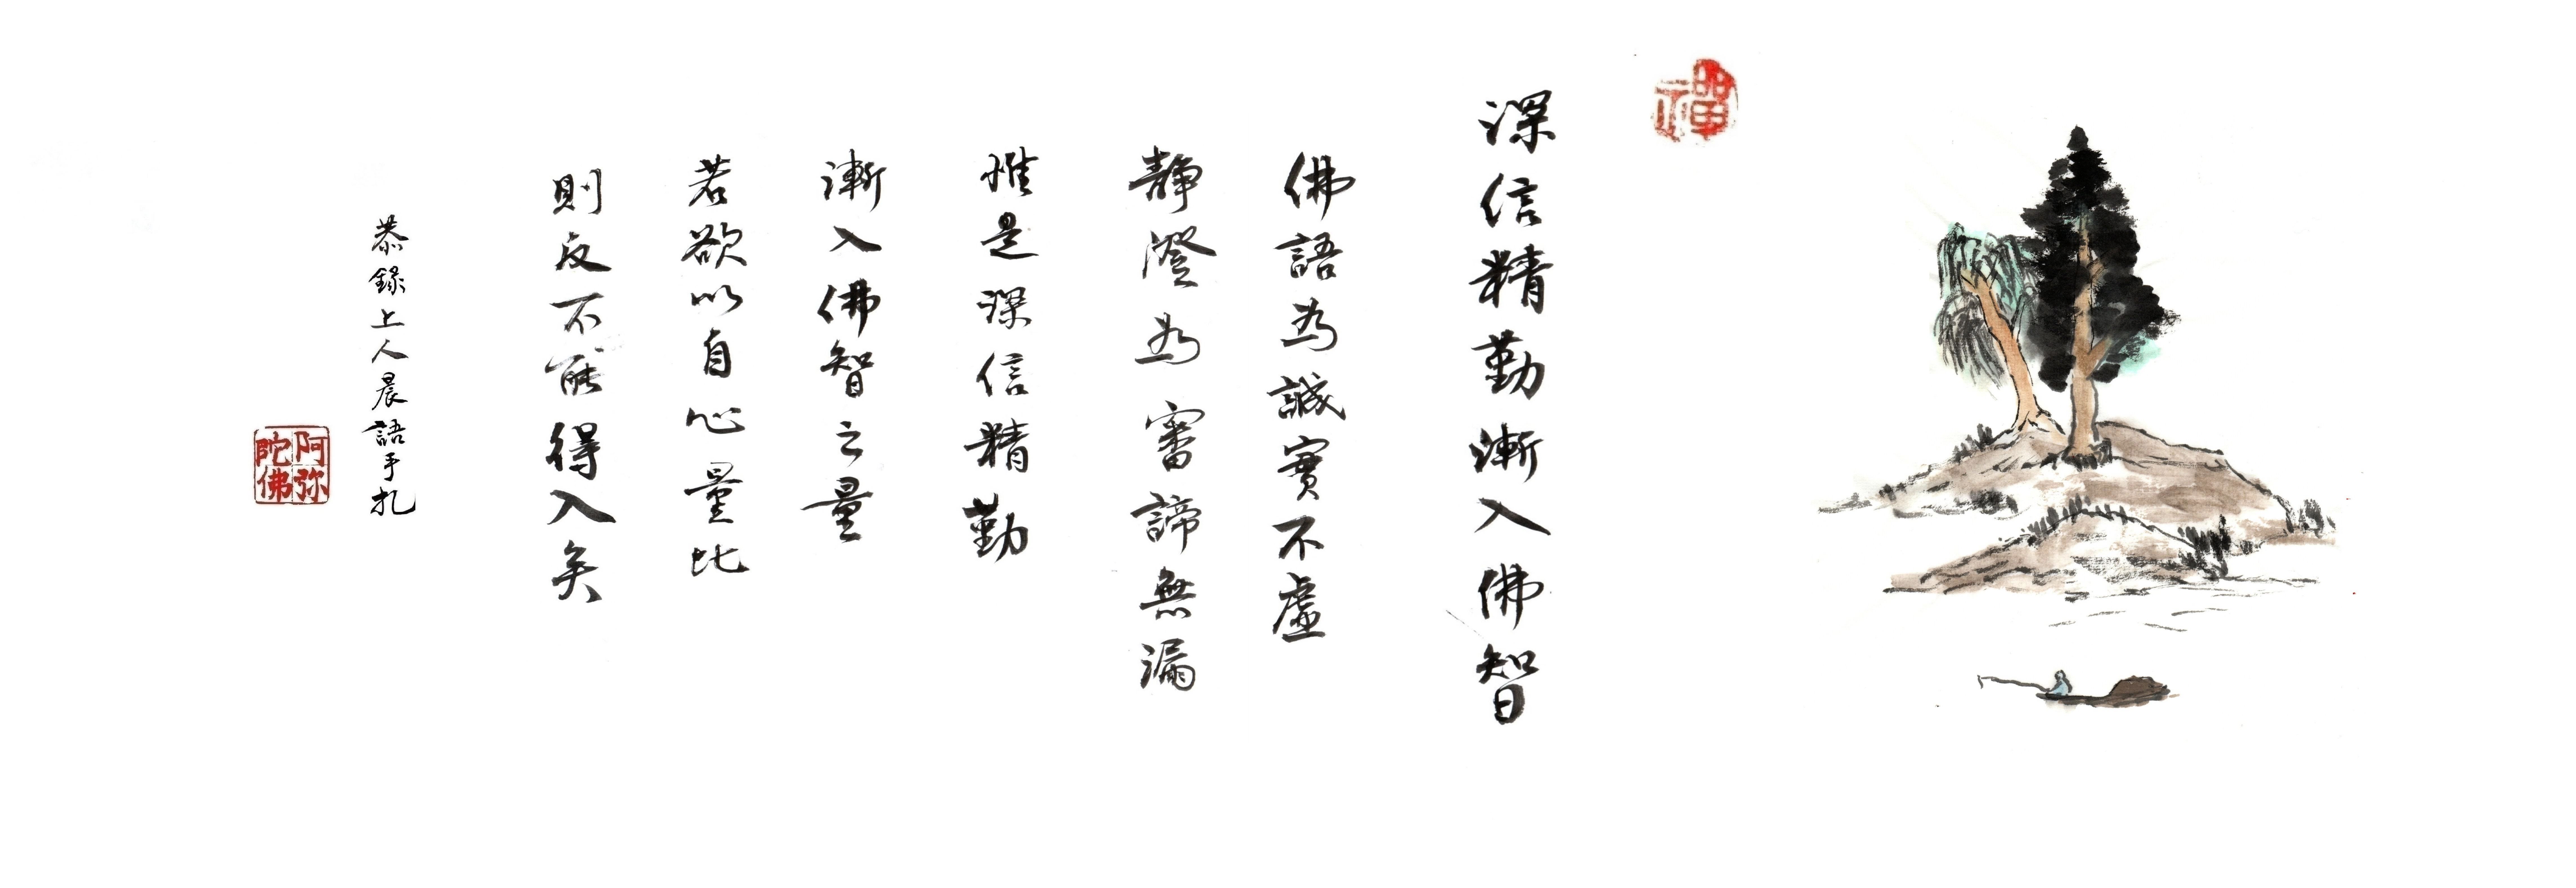 禪
深信精勤漸入佛智
佛語為誠實不虛
靜澄為審諦無漏
惟是深信精勤
漸入佛智之量
若欲以自心量比
則反不能得入矣
恭錄上人晨語手札
阿弥
陀佛